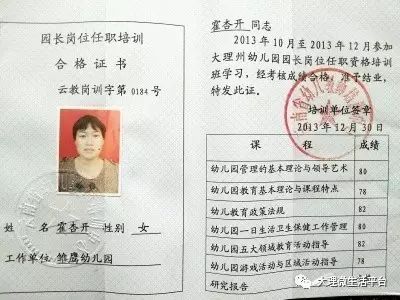 园长岗位任职培训
合格证书
云教岗训字第 0184 号
姓 名 霍杏开 性别 女
工作单位 雏鹰幼儿园
霍杏开 同志
2013 年 10 月至 2013 年 12 月参加
大理州幼儿园园长岗位任职资格培训
班学习，经考核成绩合格，准予结业，
特发此证。
培训单位签章
2013 年 12 月 30 日
课 程 成绩
幼儿园管理的基本理论与领导艺术 80
幼儿园教育基本理论与课程特点 78
幼儿教育政策法规 82
幼儿园一日生活卫生保健工作管理 80
幼儿园五大领域教育活动指导 82
幼儿园游戏活动与区域活动指导 78
研究报告
大理微生活平台